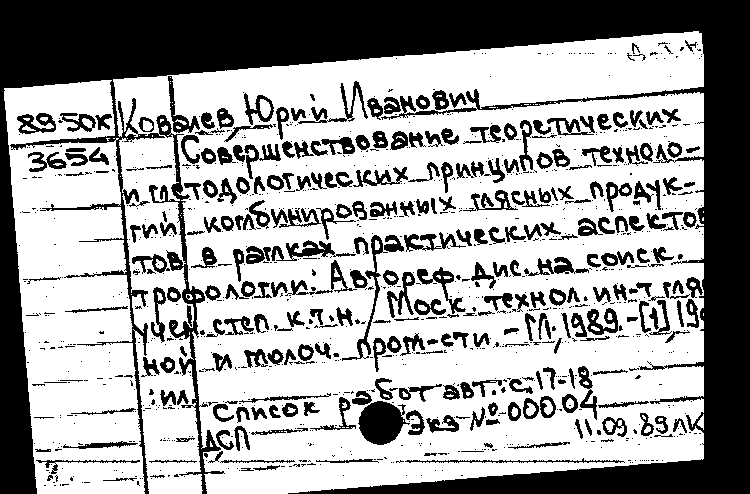 Д-Т-Н
89-50К Ковалев Юрий Иванович
3654 Совершенствование теоретических
и методологических принципов техноло-
гий комбинированных мясных продук-
тов в рамках практических аспектов
трофологии: Автореф. дис. на соиск.
учен. степ. к.т.н. / Моск. технол. ин-т мя
ной и молоч. пром-сти. - М., 1989. - [1] 19
: ил.
Список работ авт.: с. 17-18
ДСП Экз № 00004
11.09.89 ЛК